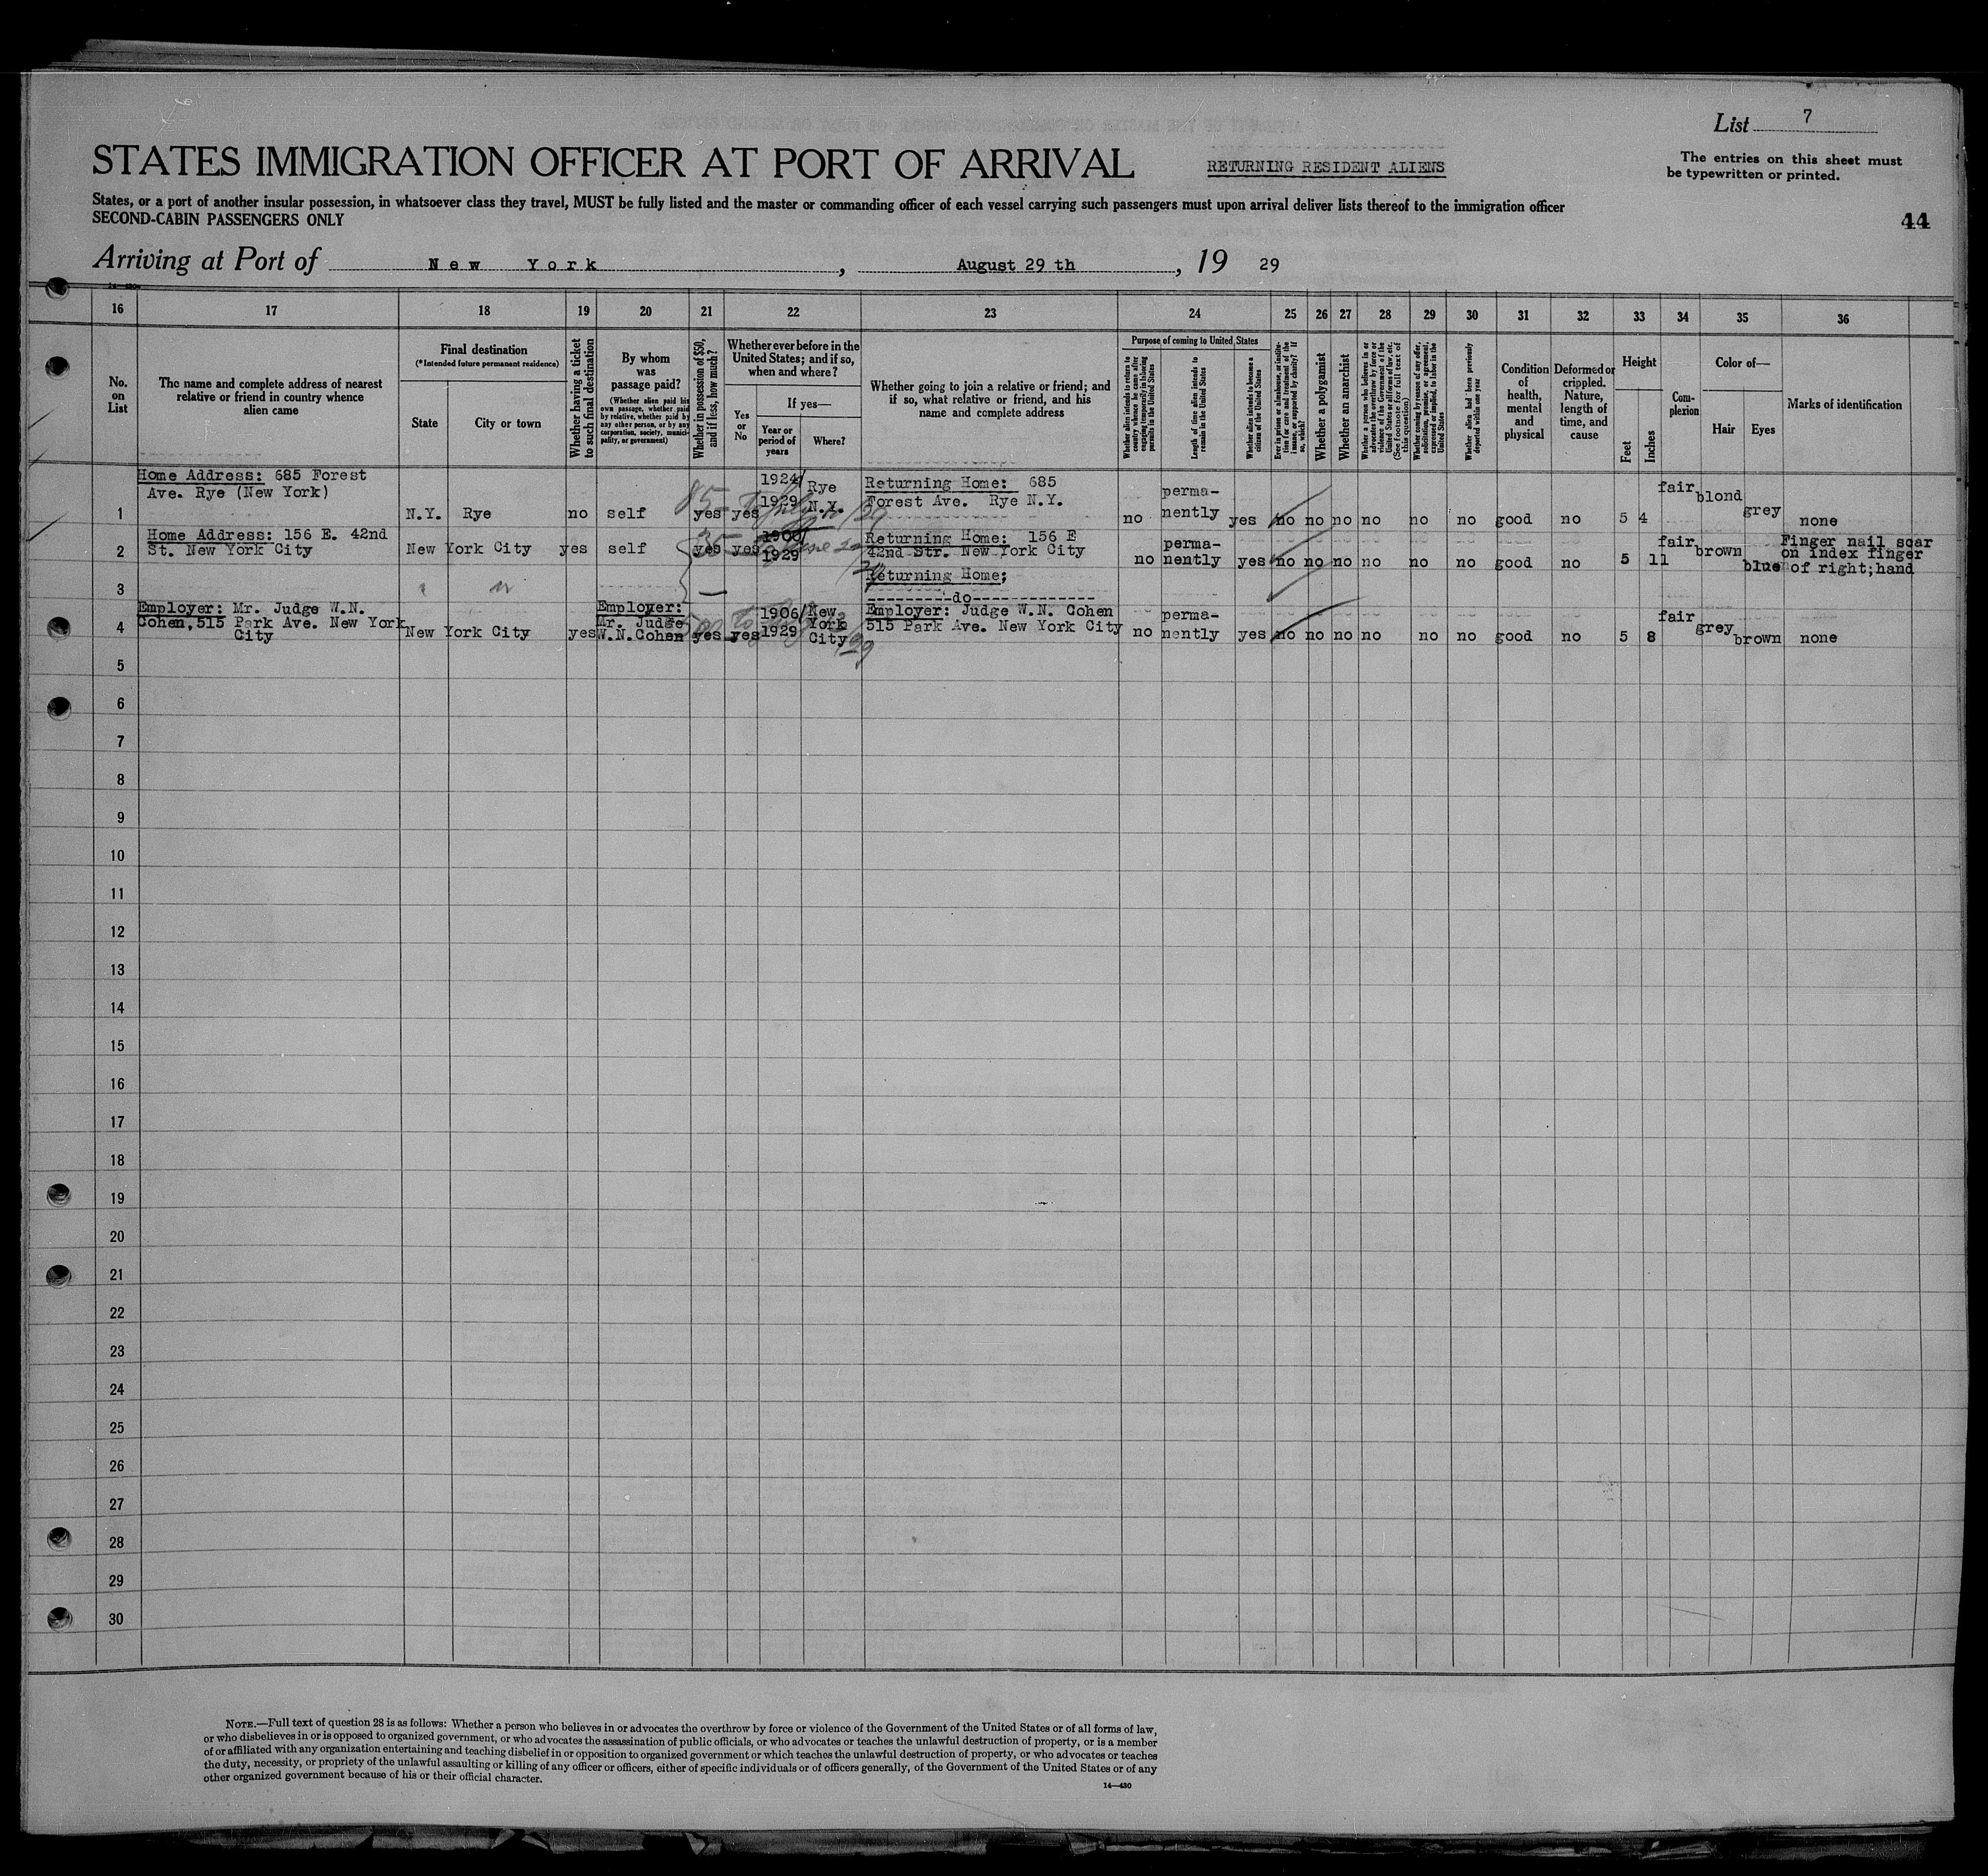 List 7
The entries on this sheet must
be typewritten or printed.
STATES IMMIGRATION OFFICER AT PORT OF ARRIVAL
RETURNING RESIDENT ALIENS
States, or a port of another insular possession, in whatsoever class they travel, MUST be fully listed and the master or commanding officer of each vessel carrying such passengers must upon arrival deliver lists thereof to the immigration officer
SECOND-CABIN PASSENGERS ONLY
44
Arriving at Port of New York, August 29 th, 19 29
16 17 18 19 20 21 22 23 24 25 26 27 28 29 30 31 32 33 34 35 36
No. on List
The name and complete address of nearest
relative or friend in country whence
alien came
Final destination
(*Intended future permanent residence)
State
City or town
Whether having a ticket
to such final destination
By whom
was
passage paid?
(Whether alien paid his
own passage, whether paid
by relative, whether paid by
any other person, or by any
corporation, society, munici-
pality, or government)
Whether in possession of $50,
and if less, how much?
Whether ever before in the
United States; and if so,
when and where?
Yes or No
If yes—
Year or
period of
years
Where?
Whether going to join a relative or friend; and
if so, what relative or friend, and his
name and complete address
Purpose of coming to United States
Whether alien intends to return to
country whence he came after
engaging temporarily in laboring
pursuits in the United States
Length of time alien intends to
remain in the United States
Whether alien intends to become a
citizen of the United States
Ever in prison or almshouse, or institu-
tion for care and treatment of the
insane, or supported by charity? If
so, which?
Whether a polygamist
Whether an anarchist
Whether a person who believes in or
advocates the overthrow by force or
violence of the Government of the
United States or all forms of law, etc.
(See footnote for full text of
this question)
Whether coming by reason of any offer,
solicitation, promise, or agreement,
expressed or implied, to labor in the
United States
Whether alien had been previously
deported within one year
Condition
of
health,
mental
and
physical
Deformed or
crippled.
Nature,
length of
time, and
cause
Height
Feet
Inches
Com-
plexion
Color of—
Hair
Eyes
Marks of identification
1 Home Address: 685 Forest
Ave. Rye (New York)
N.Y. Rye no self 85 yes yes 1924/
1929 Rye
N.Y.
Returning Home: 685
Forest Ave. Rye N.Y.
no perma-
nently yes no no no no no no good no 5 4 fair blond grey none
2 Home Address: 156 E. 42nd
St. New York City
New York City yes self 35 yes yes 1900/
1929
Returning Home: 156 E
42nd Str. New York City
no perma-
nently yes no no no no no no good no 5 11 fair brown blue
Finger nail scar
on index finger
of right;hand
3
Returning Home;
----------do-------------
4 Employer: Mr. Judge W.N.
Cohen,515 Park Ave. New York
City
New York City yes
Employer:
Mr. Judge
W.N.Cohen yes yes 1906/
1929 New
York
City
Employer: Judge W.N. Cohen
515 Park Ave. New York City
no perma-
nently yes no no no no no no good no 5 8 fair grey brown none
5
6
7
8
9
10
11
12
13
14
15
16
17
18
19
20
21
22
23
24
25
26
27
28
29
30
NOTE.—Full text of question 28 is as follows: Whether a person who believes in or advocates the overthrow by force or violence of the Government of the United States or of all forms of law,
or who disbelieves in or is opposed to organized government, or who advocates the assassination of public officials, or who advocates or teaches the unlawful destruction of property, or is a member
of or affiliated with any organization entertaining and teaching disbelief in or opposition to organized government or which teaches the unlawful destruction of property, or who advocates or teaches
the duty, necessity, or propriety of the unlawful assaulting or killing of any officer or officers, either of specific individuals or of officers generally, of the Government of the United States or of any
other organized government because of his or their official character.
14—430